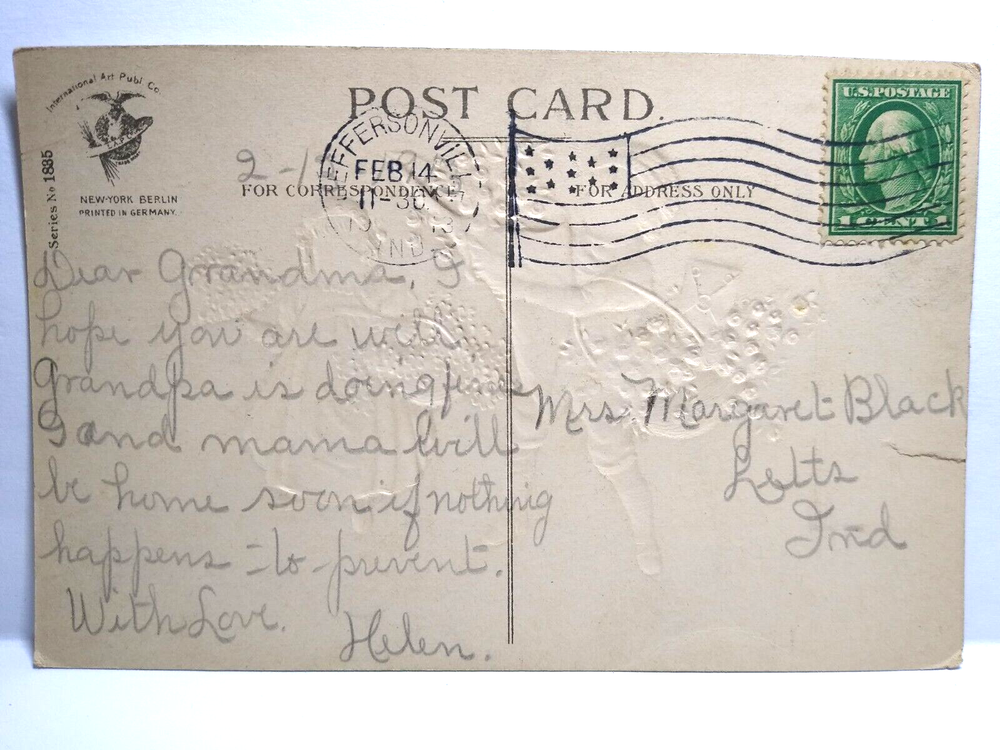 International Art Publ. Co.
NEW-YORK BERLIN
PRINTED IN GERMANY.
Series No 1835
POST CARD.
FOR CORRESPONDENCE
FOR ADDRESS ONLY
U.S. POSTAGE
1 CENT 1
JEFFERSONVILLE
FEB 14
11-30
IND.
Dear Grandma, I
hope you are well
Grandpa is doing fine
I and mama will
be home soon if nothing
happens to prevent.
With Love.
Helen.
Mrs Margaret Black
Letts
Ind